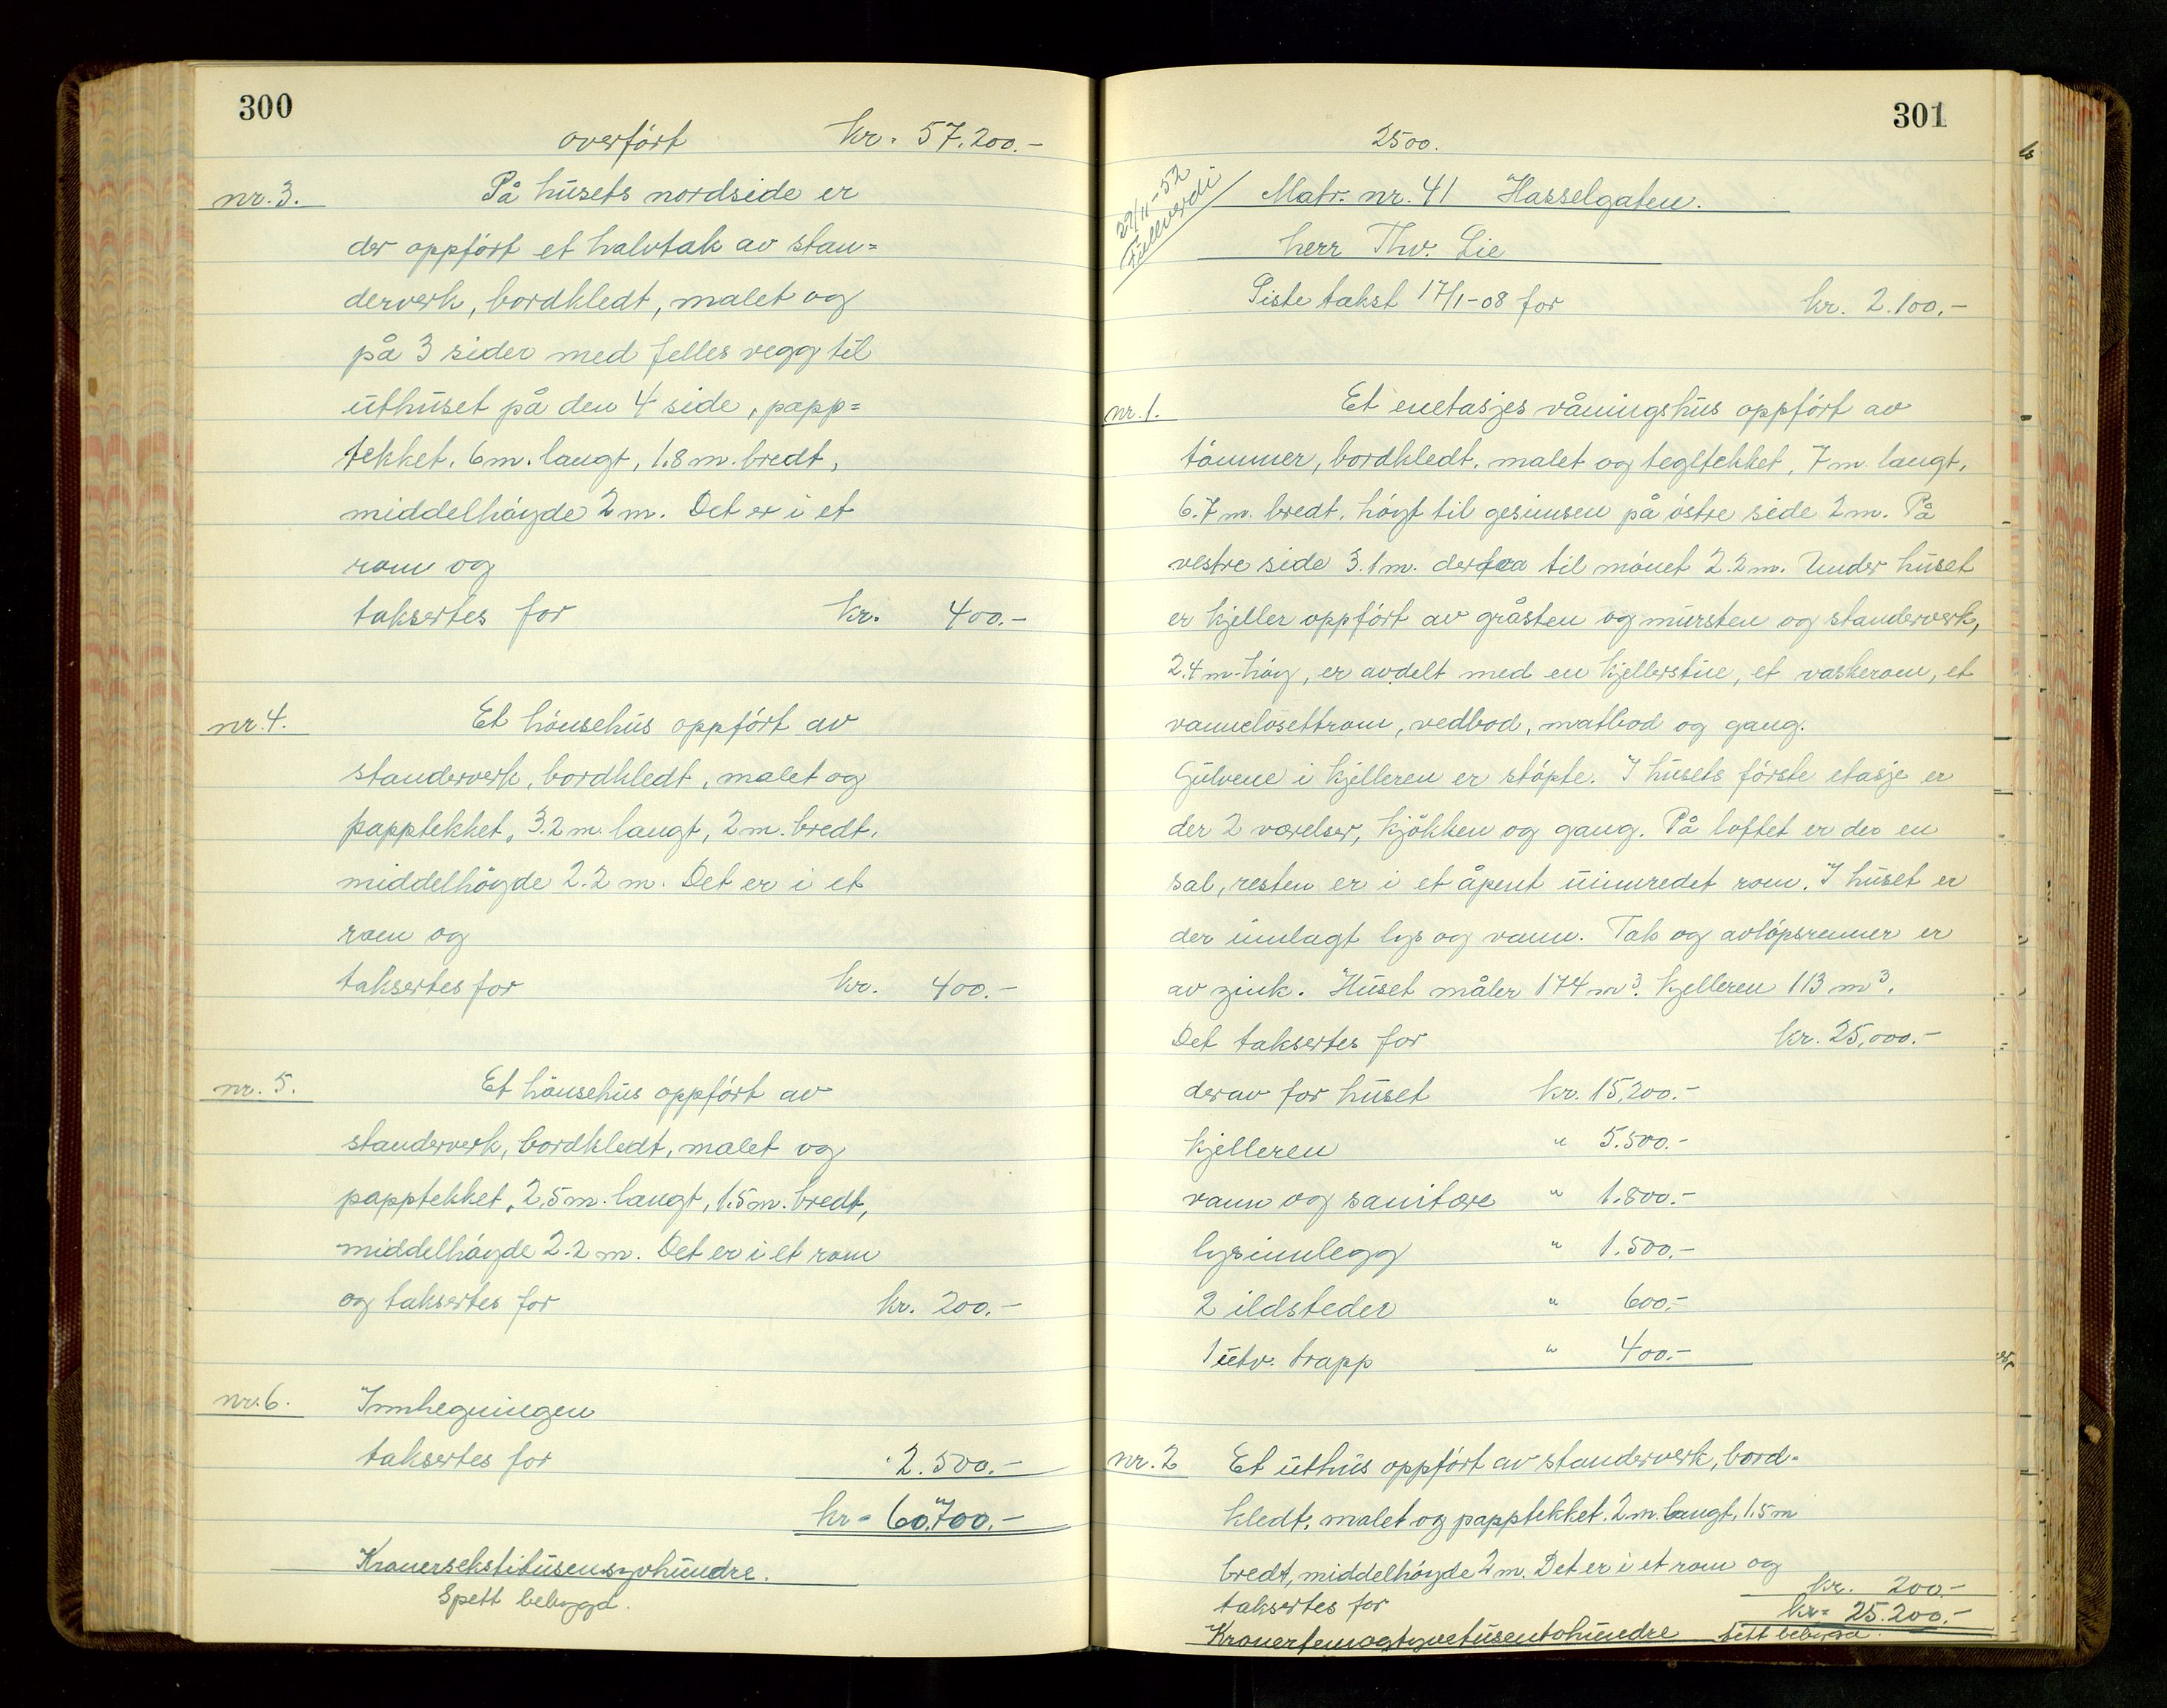 300
overført kr. 57.200.-
nr. 3. På husets nordside er
der oppført et halvtak av stan=
derverk, bordkledt, malet og
på 3 sider med felles vegg til
uthuset på den 4 side, papp=
tekket. 6 m. langt, 1.8 m. bredt,
middelhøyde 2 m. Det er i et
rom og
taksertes for kr. 400.-
nr. 4. Et hønsehus oppført av
standerverk, bordkledt, malet og
papptekket, 3.2 m. langt, 2 m. bredt,
middelhøyde 2.2 m. Det er i et
rom og
taksertes for kr. 400.-
nr. 5. Et hønsehus oppført av
standerverk, bordkledt, malet og
papptekket, 2,5 m. langt, 1.5 m. bredt,
middelhøyde 2.2 m. Det er i et rom
og taksertes for kr. 200.-
nr. 6. Innhegningen
taksertes for 2.500.-
kr = 60.700.-
Kronersekstitusensyvhundre.
Spett bebygd.
301
2500.
29/11-52
Fullverdi
Matr. nr. 41 Hasselgaten.
herr Thv. Lie
Siste takst 17/1-08 for kr. 2.100.-
nr. 1. Et enetasjes våningshus oppført av
tømmer, bordkledt, malet og tegltekket, 7 m. langt,
6.7 m. bredt, høyt til gesimsen på østre side 2 m. På
vestre side 3.1 m. derfra til mønet 2.2 m. Under huset
er kjeller oppført av gråsten og mursten og standerverk,
2.4 m høy, er avdelt med en kjellerstue, et vaskerom, et
vannclosettrom, vedbod, matbod og gang.
Gulvene i kjelleren er støpte. I husets første etasje er
der 2 værelser, kjøkken og gang. På loftet er der en
sal, resten er i et åpent uinnredet rom. I huset er
der innlagt lys og vann. Tak og avløpsrenner er
av zink. Huset måler 174 m³. kjelleren 113 m³.
Det taksertes for kr. 25,000.-
derav for huset kr. 15,200.-
kjelleren " 5.500.-
vann og sanitære " 1.800.-
lysinnlegg " 1.500.-
2 ildsteder " 600.-
1 utv. trapp " 400.-
nr. 2 Et uthus oppført av standerverk, bord-
kledt, malet og papptekket. 2 m. langt, 1.5 m
bredt, middelhøyde 2 m. Det er i et rom og
taksertes for kr. 200.-
kr = 25.200.-
Kronerfemogtyvetusentohundre tett bebygd.